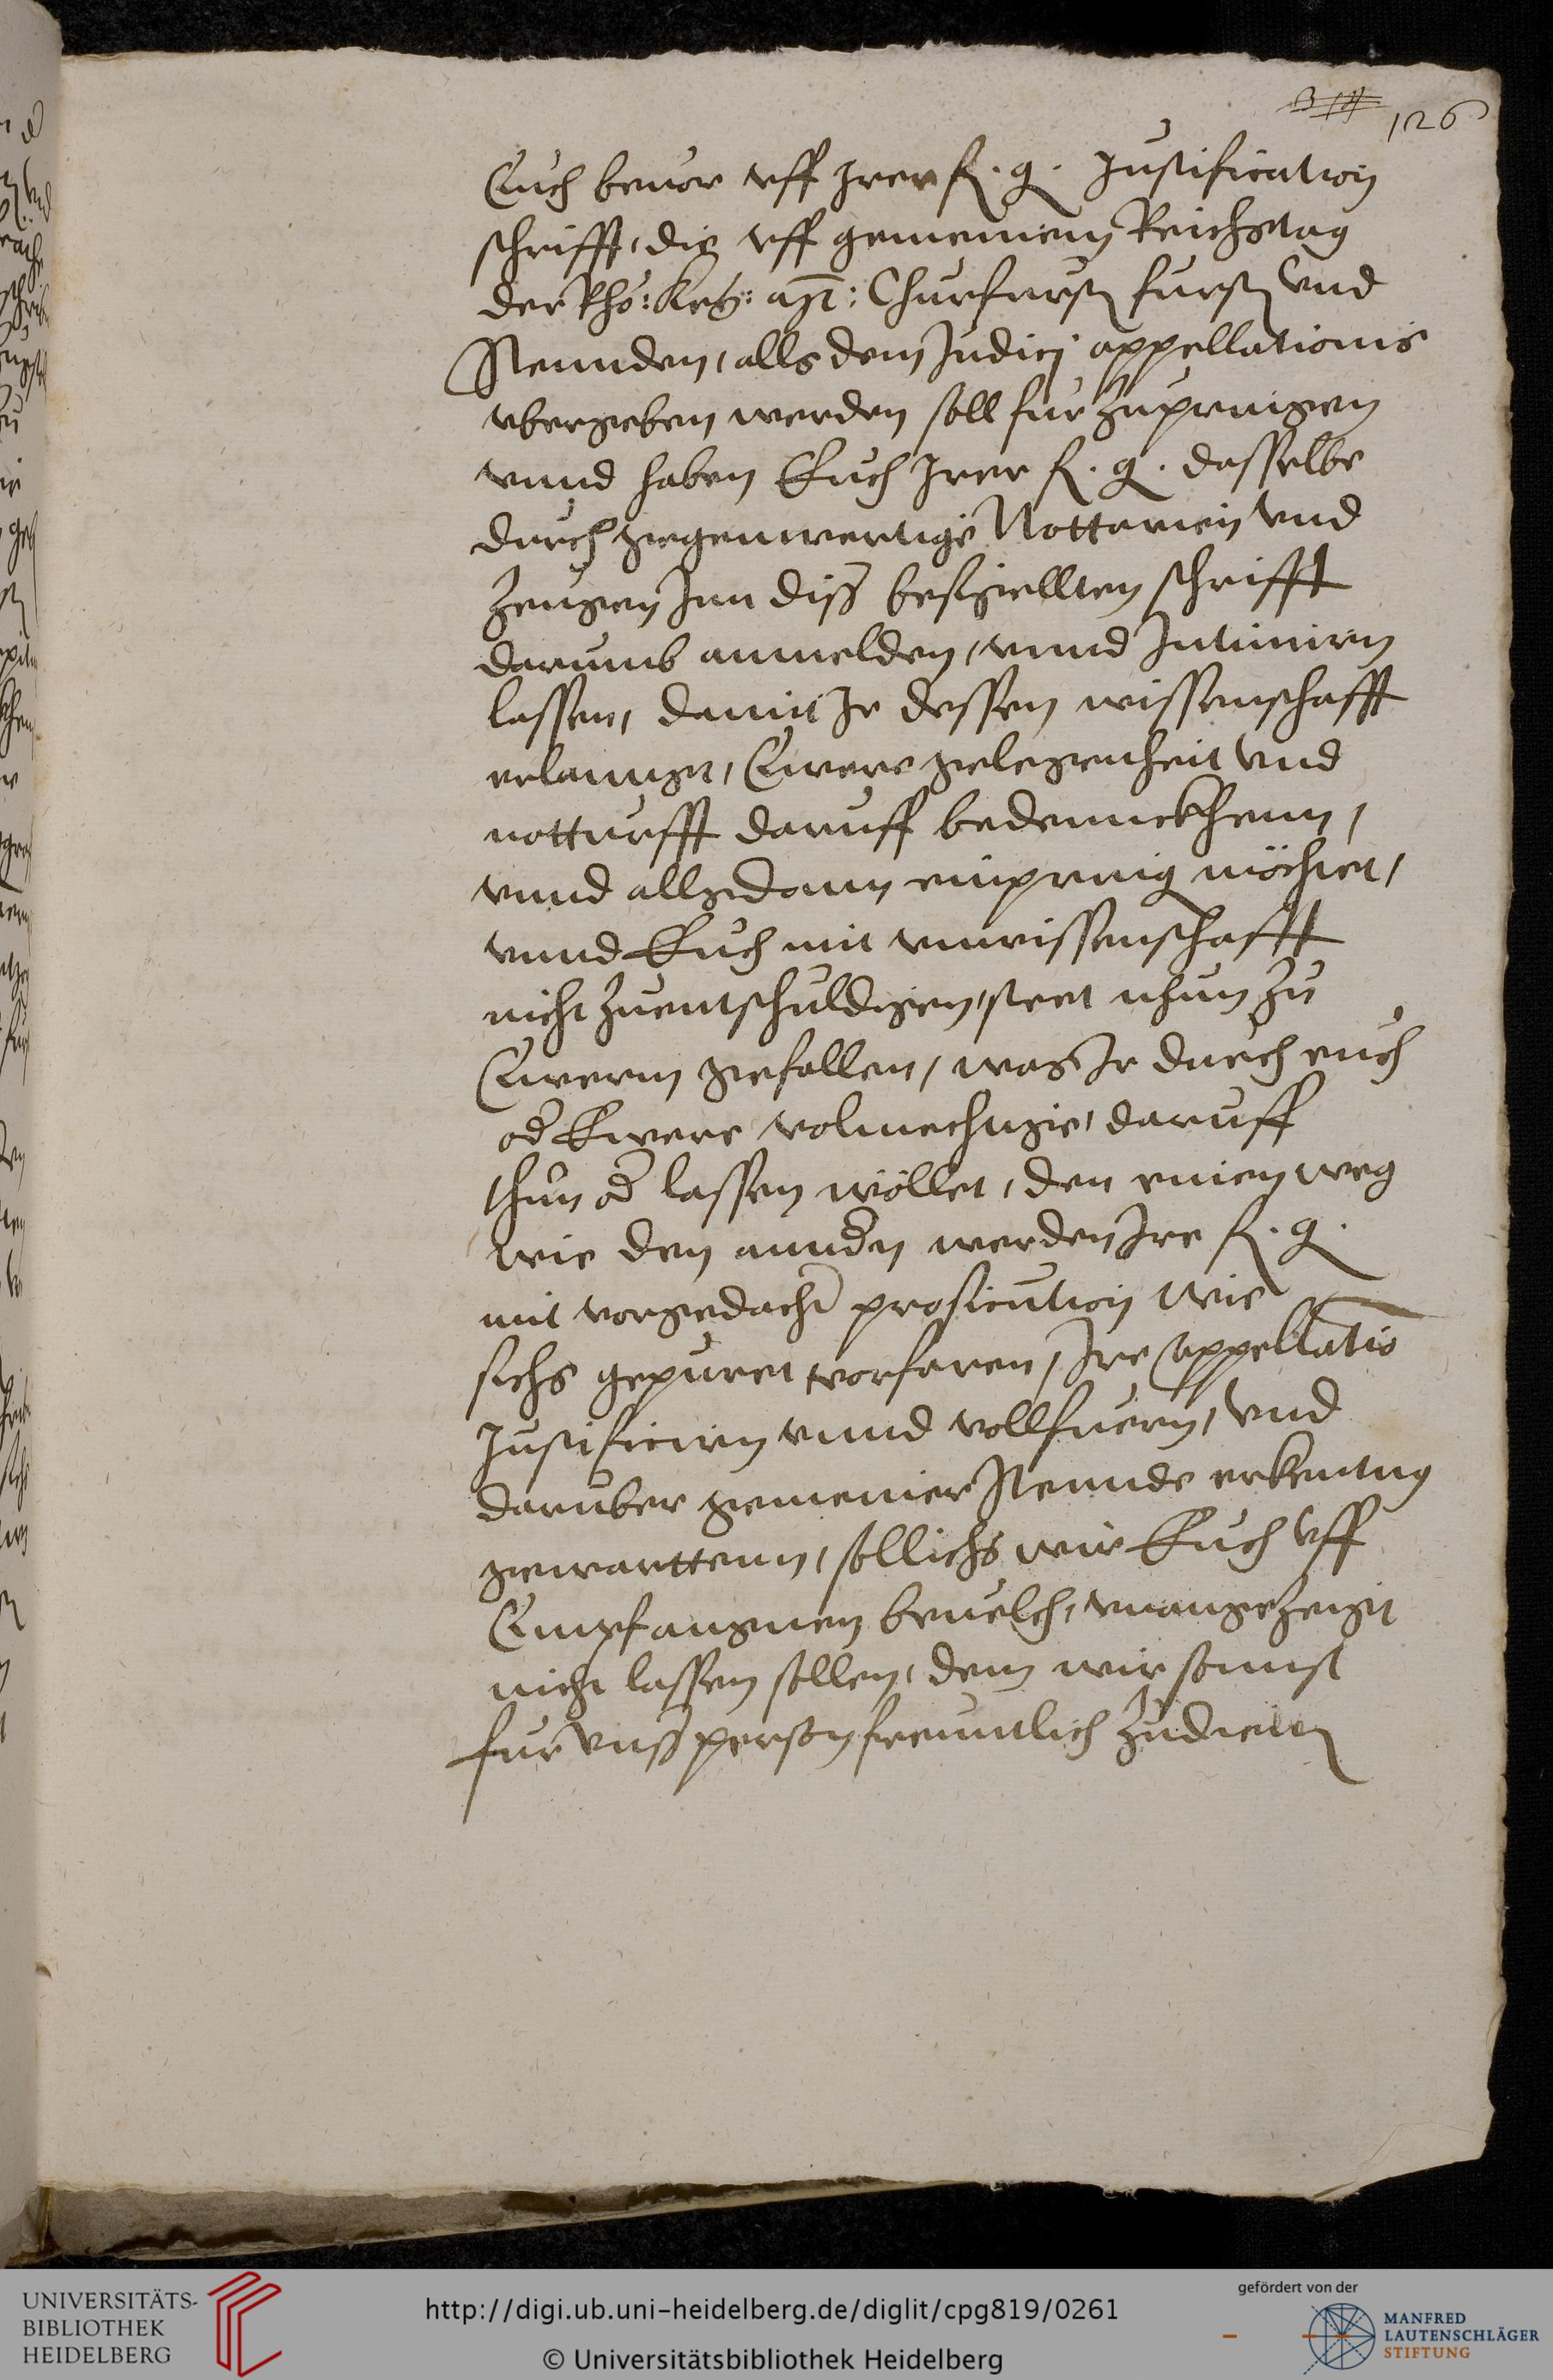 126
Euch beuor vff Irer f. g. Justification
schrifft, die vff gemeinem Reichstag
der Rho: Key: Mt: Churfursten fursten Vnd
Stennden, alls dem Judicj appellationis
vbergeben werden soll furzupringen
vnnd haben Euch Irer f. g. dasselbe
durch gegenwertige Nottarien Vnd
Zeugen Inn diss besigellten schrifft
darumb anmelden, vnnd Intimirn
lassen, damit Ir dessen wissenschafft
erlannget, Ewere gelegenheit Vnd
notturfft daruff bedennckhenn,
vnnd allsdann einpringen möchtet,
vnnd Euch mit vnwissenschafft
nicht Zuentschuldigen, steet nhun Zu
Ewerm gefallen, was Ir durch euch
od Ewere volmechtige, daruff
thun od lassen wöllet, den einen weg
wie den anndern werden Ire f. g.
mit vorgedachter prosicution wie
sichs gepuret vorfaren, Ire appellatio
Justificirn vnnd vollfuern, Vnd
daruber gemeiner Stennde erkentnus
gewarttenn, sollichs wir Euch Vff
Empfangnen beuelch, vnangezeigt
nicht lassen sollen, dem wir sonnst
fur vnss person freuntlich Zudienen
UNIVERSITÄTS-
BIBLIOTHEK
HEIDELBERG
http://digi.ub.uni-heidelberg.de/diglit/cpg819/0261
© Universitätsbibliothek Heidelberg
gefördert von der
MANFRED
LAUTENSCHLÄGER
STIFTUNG